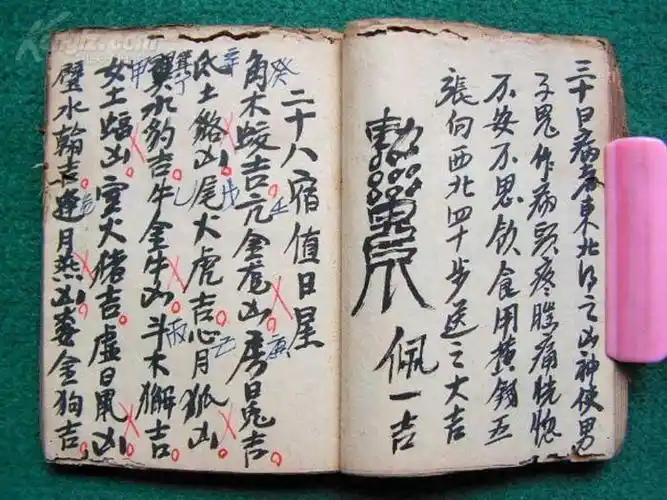 三十日病者東北得之凶神使男
子鬼作病頭疼腿痛恍惚
不安不思飲食用黄錢五
張向西北四十步送之大吉
佩一吉
二十八宿值日星
角木蛟吉亢金龙凶房日兔吉
氐土貉凶尾火虎吉心月狐凶
翼水豹吉牛金牛凶斗木獬吉
女土蝠凶室火猪吉虚日鼠凶
壁水貐吉危月燕凶婁金狗吉
癸
壬
庚
辛
戊
己
丁
丙
甲